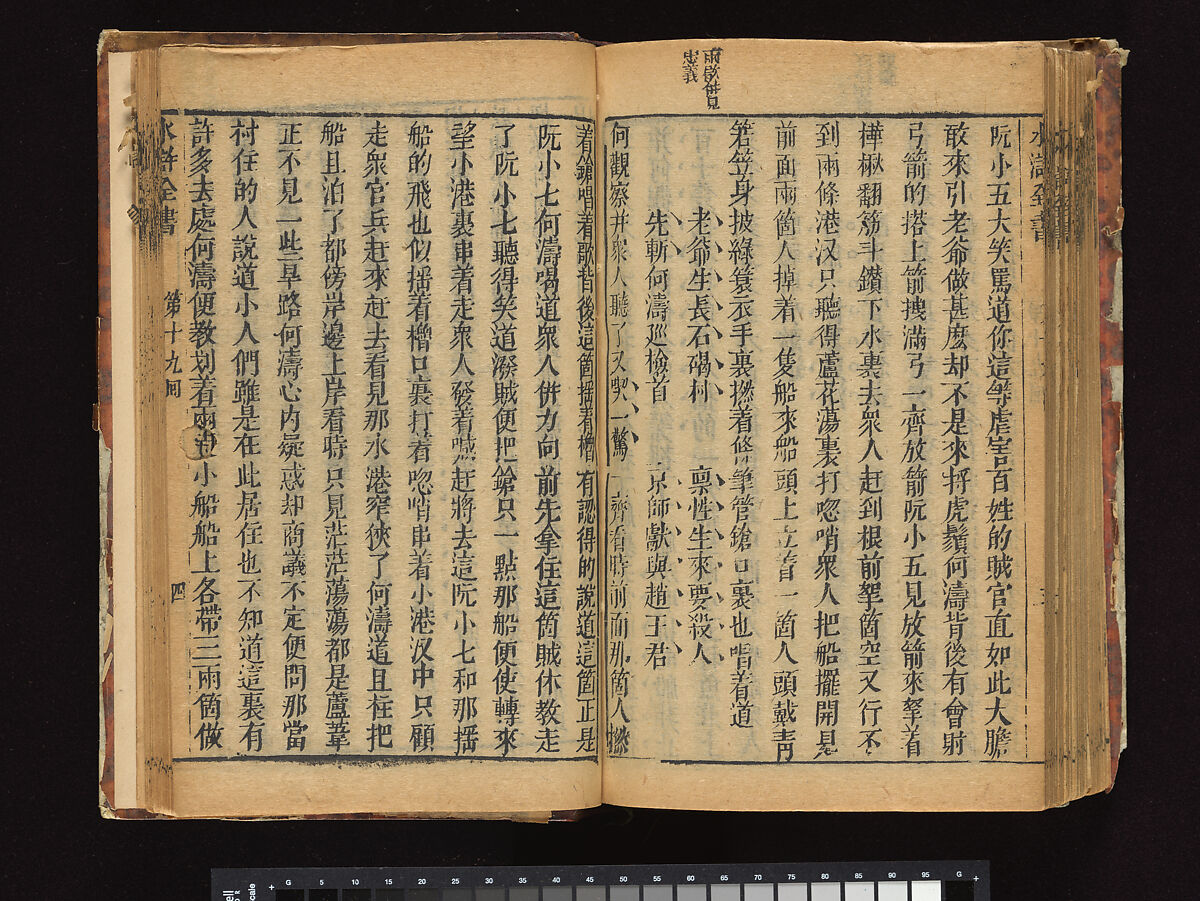 兩欲併見
忠義
水滸全書
阮小五大笑罵道你這等虐害百姓的賊官直如此大膽
敢來引老爺做甚麽却不是來捋虎鬚何濤背後有會射
弓箭的搭上箭拽滿弓一齊放箭阮小五見放箭來拏着
樺楸翻筋斗鑽下水裏去衆人赶到根前拏箇空又行不
到兩條港汊只聽得蘆花蕩裏打唿哨衆人把船擺開見
前面兩箇人掉着一隻船來船頭上立着一箇人頭戴青
箬笠身披綠簑衣手裏撚着條筆管鎗口裏也唱着道
老爺生長石碣村 禀性生來要殺人
先斬何濤巡檢首 京師獻與趙王君
何觀察并衆人聽了又喫一驚一齊看時前面那箇人撚
着鎗唱着歌背後這箇揺着櫓有認得的說道這箇正是
阮小七何濤喝道衆人併力向前先拿住這箇賊休教走
了阮小七聽得笑道潑賊便把鎗只一點那船便使轉來
望小港裏串着走衆人發着喊赶將去這阮小七和那揺
船的飛也似揺着櫓口裏打着唿哨串着小港汊中只顧
走衆官兵赶來赶去看見那水港窄狹了何濤道且住把
船且泊了都傍岸邊上岸看時只見茫茫蕩蕩都是蘆葦
正不見一些旱路何濤心内疑惑却商議不定便問那當
村住的人說道小人們雖是在此居住也不知道這裏有
許多去處何濤便教划着兩隻小船船上各帶三兩箇做
水滸全書 第十九囘 四
G 5 10 15 20 25 30 35 40 45 50 55 60 65 70 75 80 85 90 95 G